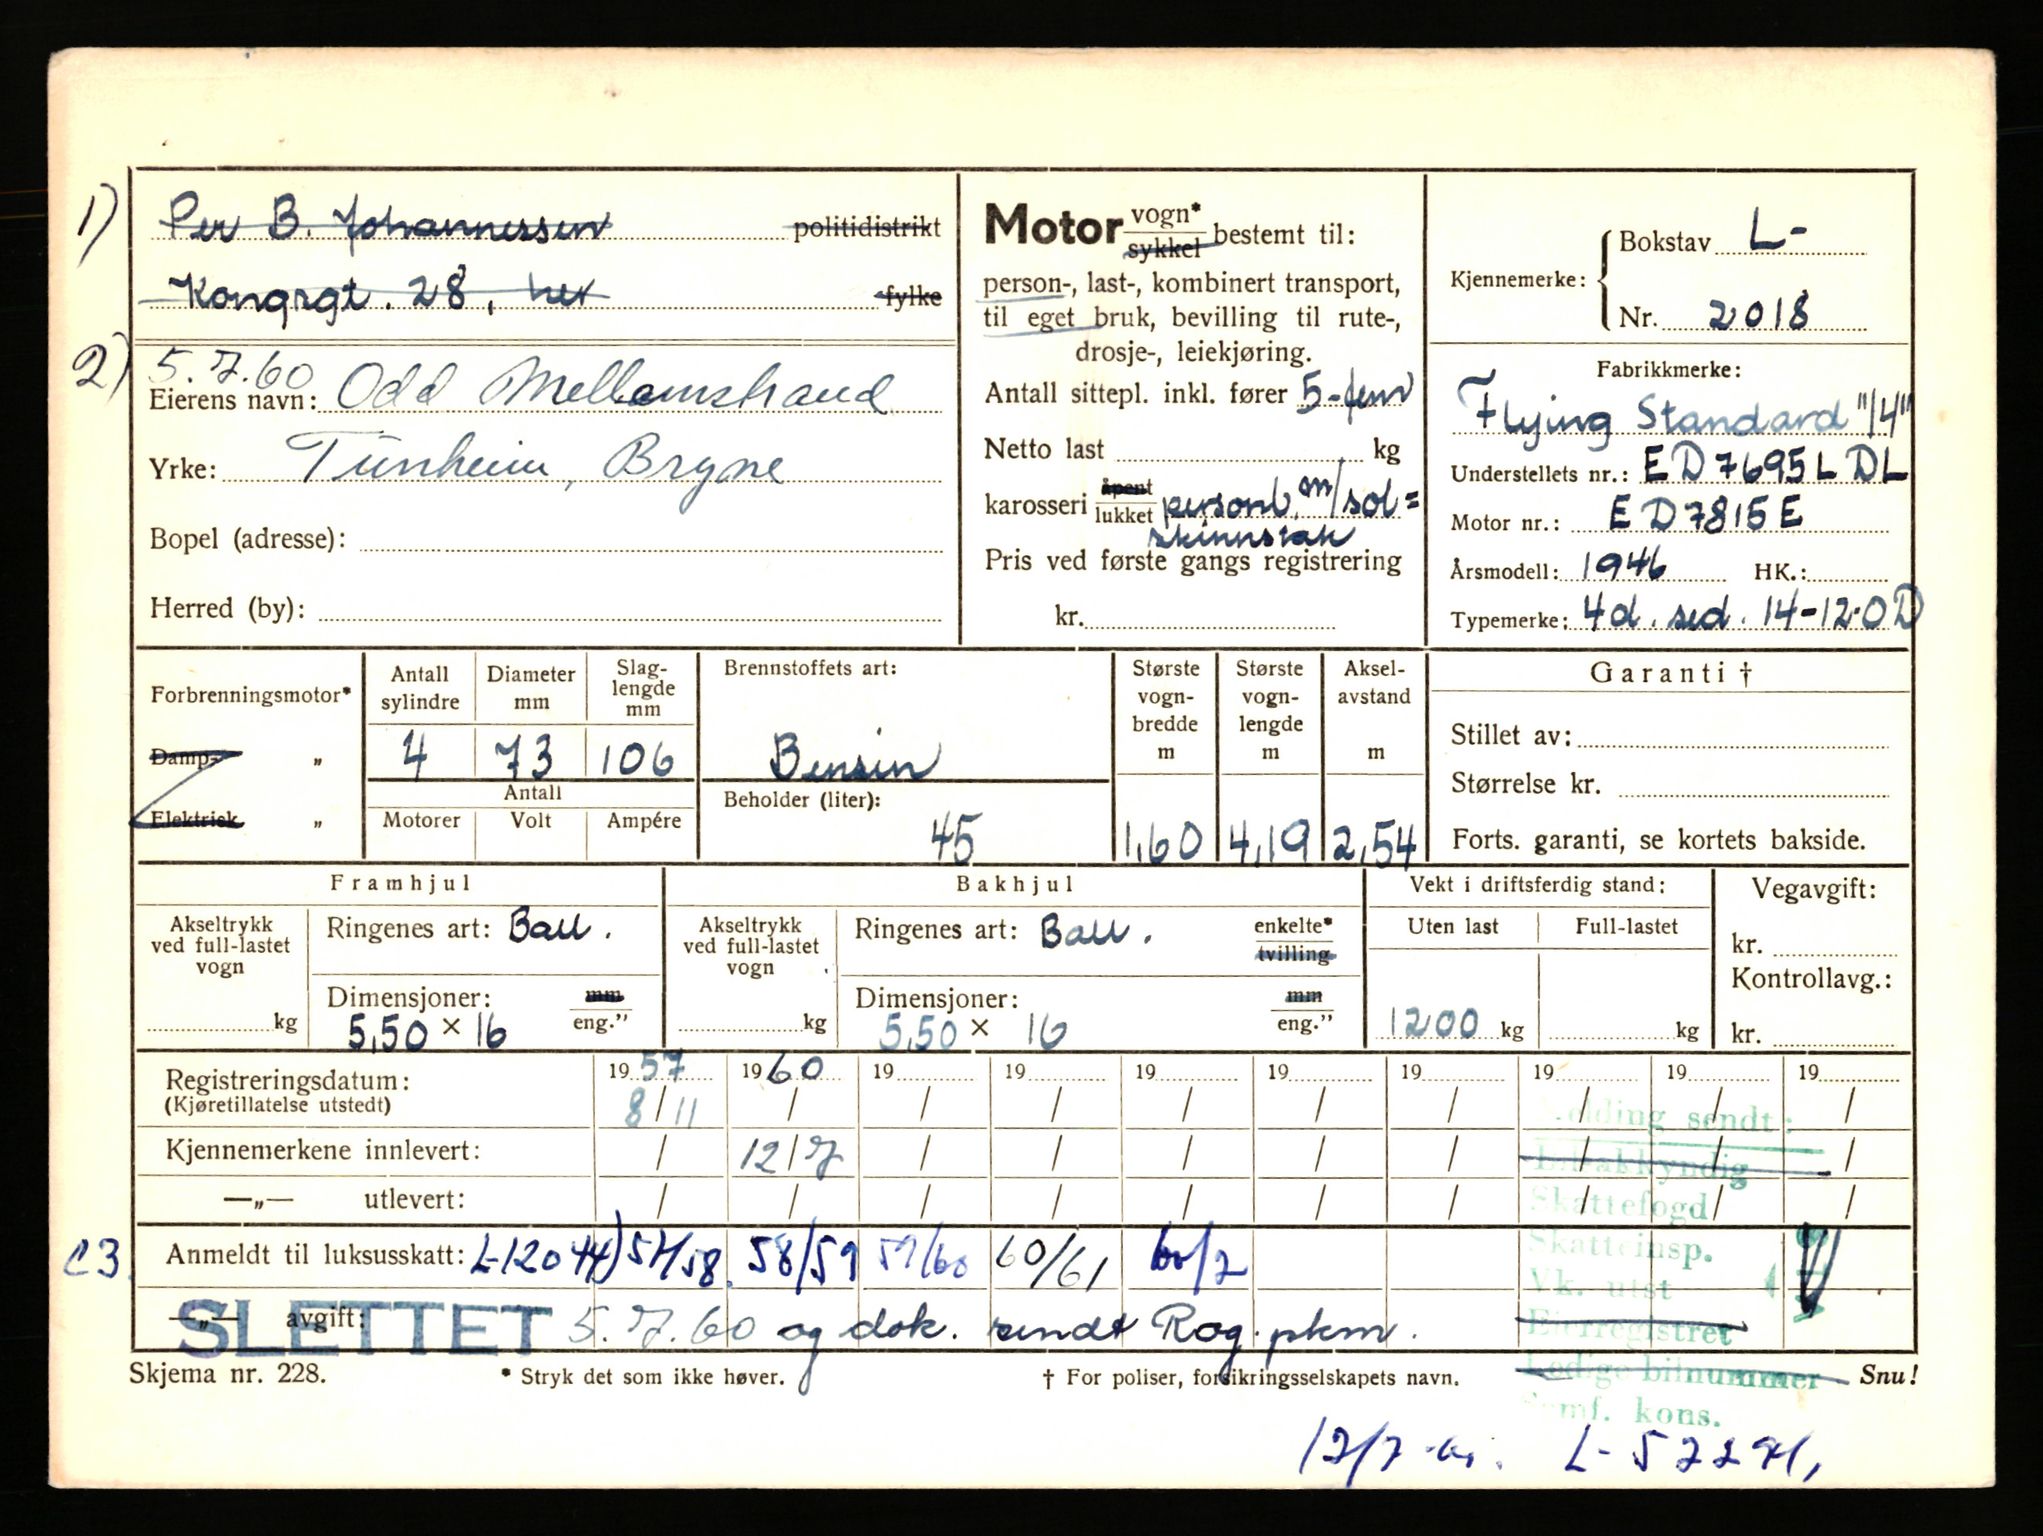 1) Per B. Johannessen politidistrikt
Kongsgt. 28, her fylke
2) 5.7.60
Eierens navn: Odd Mellomstrand
Yrke: Tunheim, Bryne
Bopel (adresse):
Herred (by):
Motor vogn* sykkel bestemt til:
person-, last-, kombinert transport,
til eget bruk, bevilling til rute-,
drosje-, leiekjøring.
Antall sittepl. inkl. fører 5-fem
Netto last kg
karosseri åpent lukket personb. m/sol=
skinnstak
Pris ved første gangs registrering
kr.
Kjennemerke: Bokstav L-
Nr. 2018
Fabrikkmerke:
Flying Standard "14"
Understellets nr.: ED7695LDL
Motor nr.: ED7815E
Årsmodell: 1946 HK.:
Typemerke: 4d. sed. 14-12-0D
Forbrenningsmotor*
Damp- "
Elektrisk "
Antall sylindre 4
Diameter mm 73
Slaglengde mm 106
Antall
Motorer Volt Ampére
Brennstoffets art:
Bensin
Beholder (liter):
45
Største vognbredde m 1,60
Største vognlengde m 4,19
Akselavstand m 2,54
Garanti †
Stillet av:
Størrelse kr.
Forts. garanti, se kortets bakside.
Framhjul
Akseltrykk ved full-lastet vogn kg
Ringenes art: Ball.
Dimensjoner: mm eng."
5,50 × 16
Bakhjul
Akseltrykk ved full-lastet vogn kg
Ringenes art: Ball. enkelte* tvilling
Dimensjoner: mm eng."
5,50 × 16
Vekt i driftsferdig stand:
Uten last Full-lastet
1200 kg kg
Vegavgift:
kr.
Kontrollavg.:
kr.
Registreringsdatum: 1957 1960 19 19 19 19 19 19 19 19
(Kjøretillatelse utstedt) 8/11 / / / / / / / / /
Kjennemerkene innlevert: / 12/7 / / / / / / / /
—„— utlevert: / / / / / / / / / /
Anmeldt til luksusskatt: L-12044) 57/58. 58/59 59/60 60/61 60/2
—„— avgift: SLETTET 5.7.60 og dok. sendt Rog. pkm.
Melding sendt:
Bilsakkyndig
Skattefogd
Skatteinsp.
Vk. utst
Eierregistret
Ledige bilnummer
kons.
Skjema nr. 228. * Stryk det som ikke høver. † For poliser, forsikringsselskapets navn. Snu!
12/7